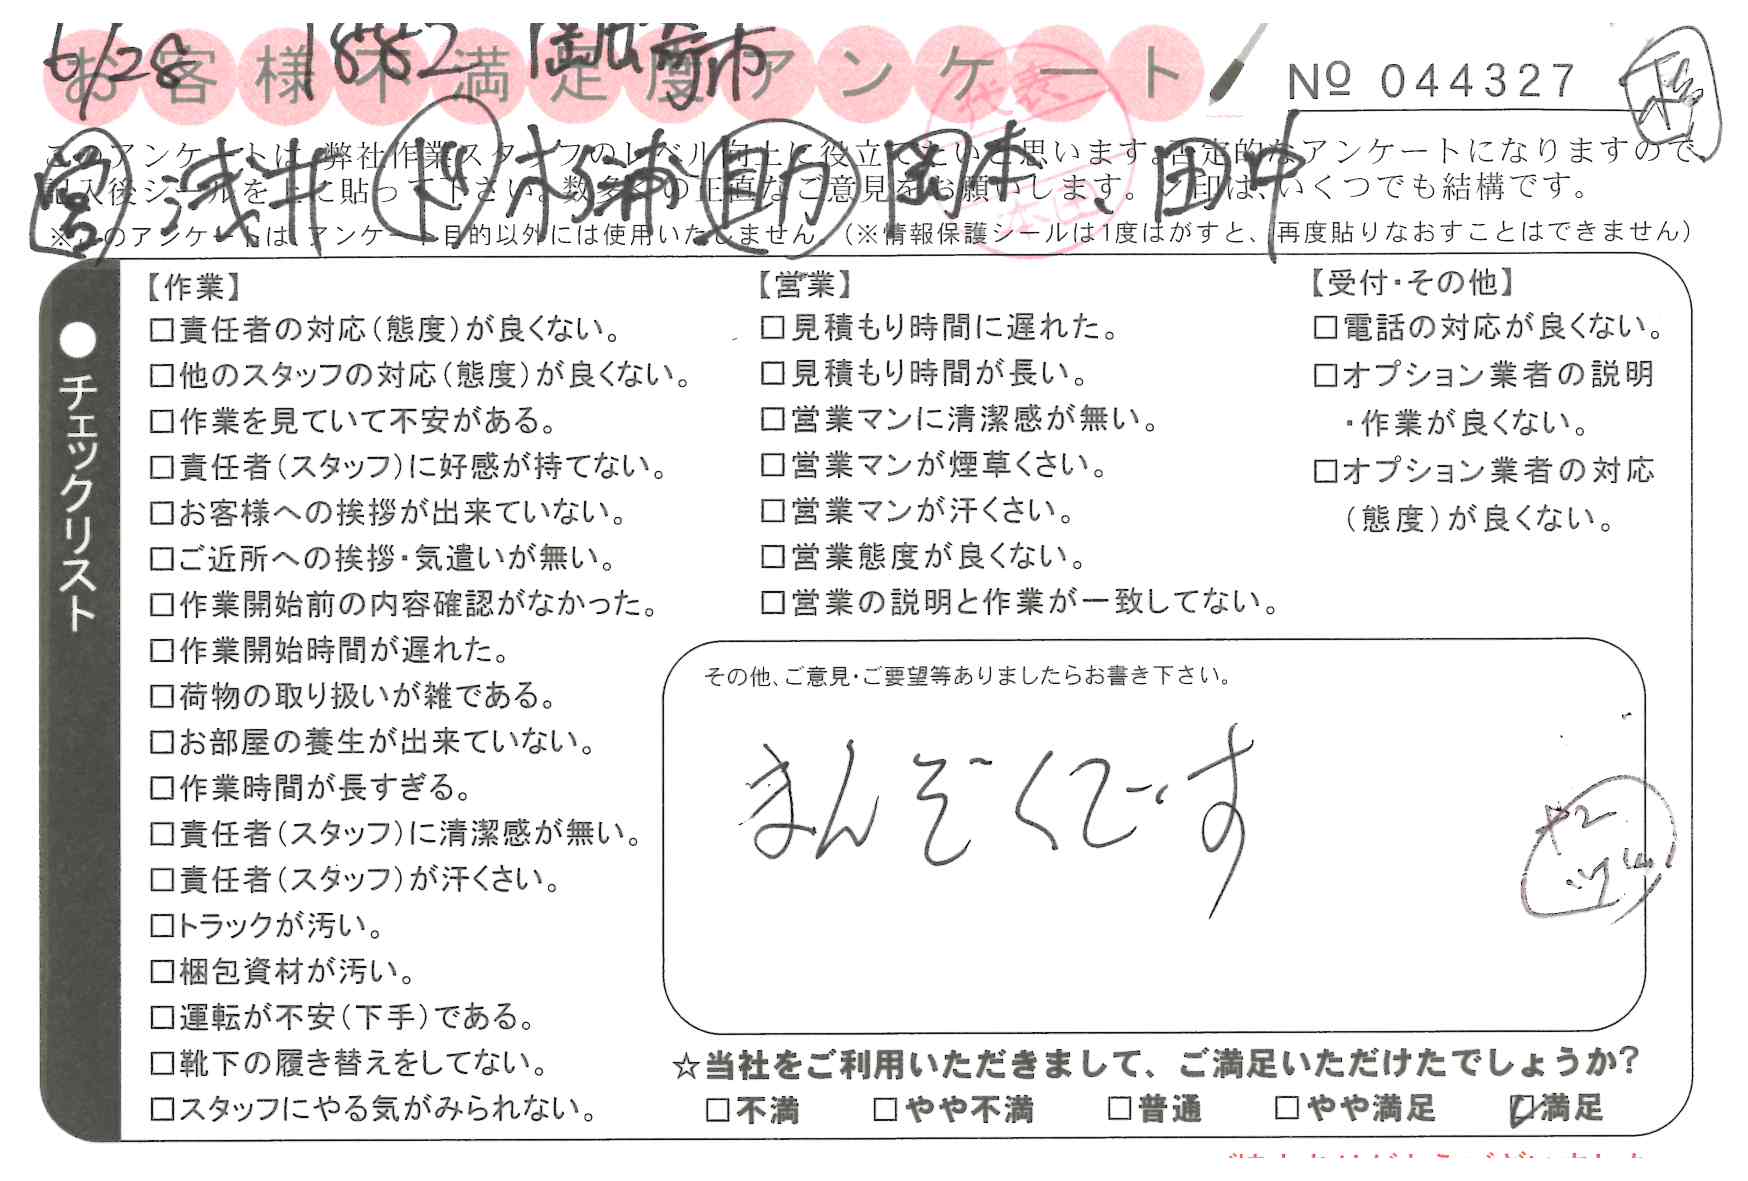 6/28 18882 岡崎市
お客様不満足度アンケート
№ 044327
このアンケートは、弊社作業スタッフのレベル向上に役立てたいと思います。否定的なアンケートになりますので、
記入後シールを上に貼って下さい。数多くの正直なご意見をお願いします。レ印は、いくつでも結構です。
営 浅井 杉浦 助 岡本、田中
※このアンケートは、アンケート目的以外には使用いたしません。（※情報保護シールは1度はがすと、再度貼りなおすことはできません）
●チェックリスト
【作業】
□責任者の対応（態度）が良くない。
□他のスタッフの対応（態度）が良くない。
□作業を見ていて不安がある。
□責任者（スタッフ）に好感が持てない。
□お客様への挨拶が出来ていない。
□ご近所への挨拶・気遣いが無い。
□作業開始前の内容確認がなかった。
□作業開始時間が遅れた。
□荷物の取り扱いが雑である。
□お部屋の養生が出来ていない。
□作業時間が長すぎる。
□責任者（スタッフ）に清潔感が無い。
□責任者（スタッフ）が汗くさい。
□トラックが汚い。
□梱包資材が汚い。
□運転が不安（下手）である。
□靴下の履き替えをしてない。
□スタッフにやる気がみられない。
【営業】
□見積もり時間に遅れた。
□見積もり時間が長い。
□営業マンに清潔感が無い。
□営業マンが煙草くさい。
□営業マンが汗くさい。
□営業態度が良くない。
□営業の説明と作業が一致してない。
【受付・その他】
□電話の対応が良くない。
□オプション業者の説明
・作業が良くない。
□オプション業者の対応
（態度）が良くない。
その他、ご意見・ご要望等ありましたらお書き下さい。
まんぞくです
☆当社をご利用いただきまして、ご満足いただけたでしょうか?
□不満 □やや不満 □普通 □やや満足 ☑満足